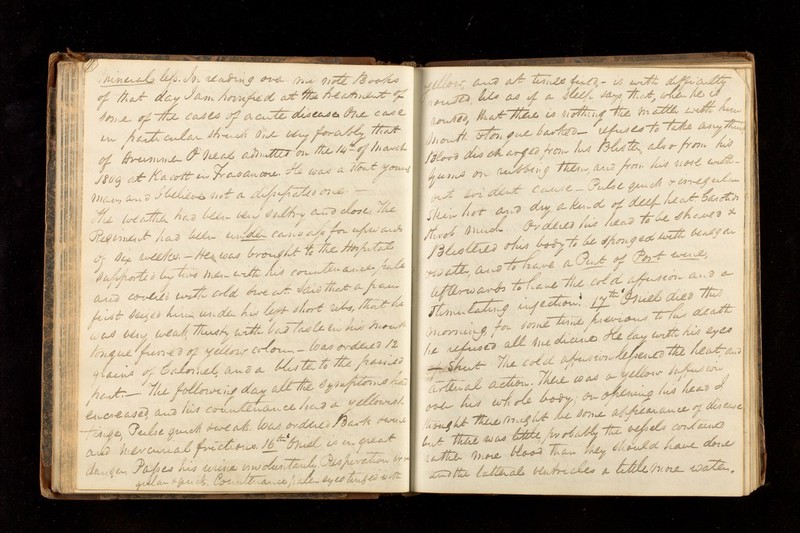 mineral lys. In reading over my note Books
of that day I am horrified at the treatment of
some of the cases of acute disease One case
in particular struck me very forcibly that
of Drummer O'Neal admitted on the 14th of March
1809 at Kacott in Travancore. He was a stout young
man and I believe not a dissipated one —
The weather had been very sultry and close. The
Regiment had been under canvass for upwards
of six weeks. — He was brought to the Hospital
supported by two men with his countenance pale
and covered with cold sweat Said that a pain
first seized him under his left short ribs, that he
was very weak thirsty with bad taste in his mouth
tongue furred of yellow colour — was ordered 12
grains of Calomel, and a blister to the pained
part. — The following day all the symptoms had
encreased, and his countenance had a yellowish
tinge, Pulse quick & weak Was ordered Bark & wine
and mercurial frictions. 16th Oneil is in great
danger Passes his urine involuntarily. Respiration
& quick. Countenance pale eyes tinged with
yellow, and at times - is with difficulty
roused, lies as if a sleep. says that, when he is
roused, that there is nothing the matter with him
Mouth & tongue parched — refuses to take any thing
Blood discharged from his Blister, also from his
gums on rubbing them, and from his nose with-
out evident cause — Pulse quick & irregular
Skin hot and dry a kind of deep heat Carotids
throb much. Ordered his head to be shaved &
Blistered & his body to be sponged with vinegar
& water, and to have a Pint of Port wine,
afterwards to have the cold affusion and a
Stimulating injection. 17th Oneil died this
morning, for some time previous to his death
he refused all medicine. He lay with his eyes
— Shut The cold affusion lessened the heat, and
arterial action. There was a yellow suffusion
over his whole body, on opening his head I
thought there might be some appearance of disease
but there was little, probably the vessels contained
rather more blood than they should have done
and the latteral ventricles a little more water.